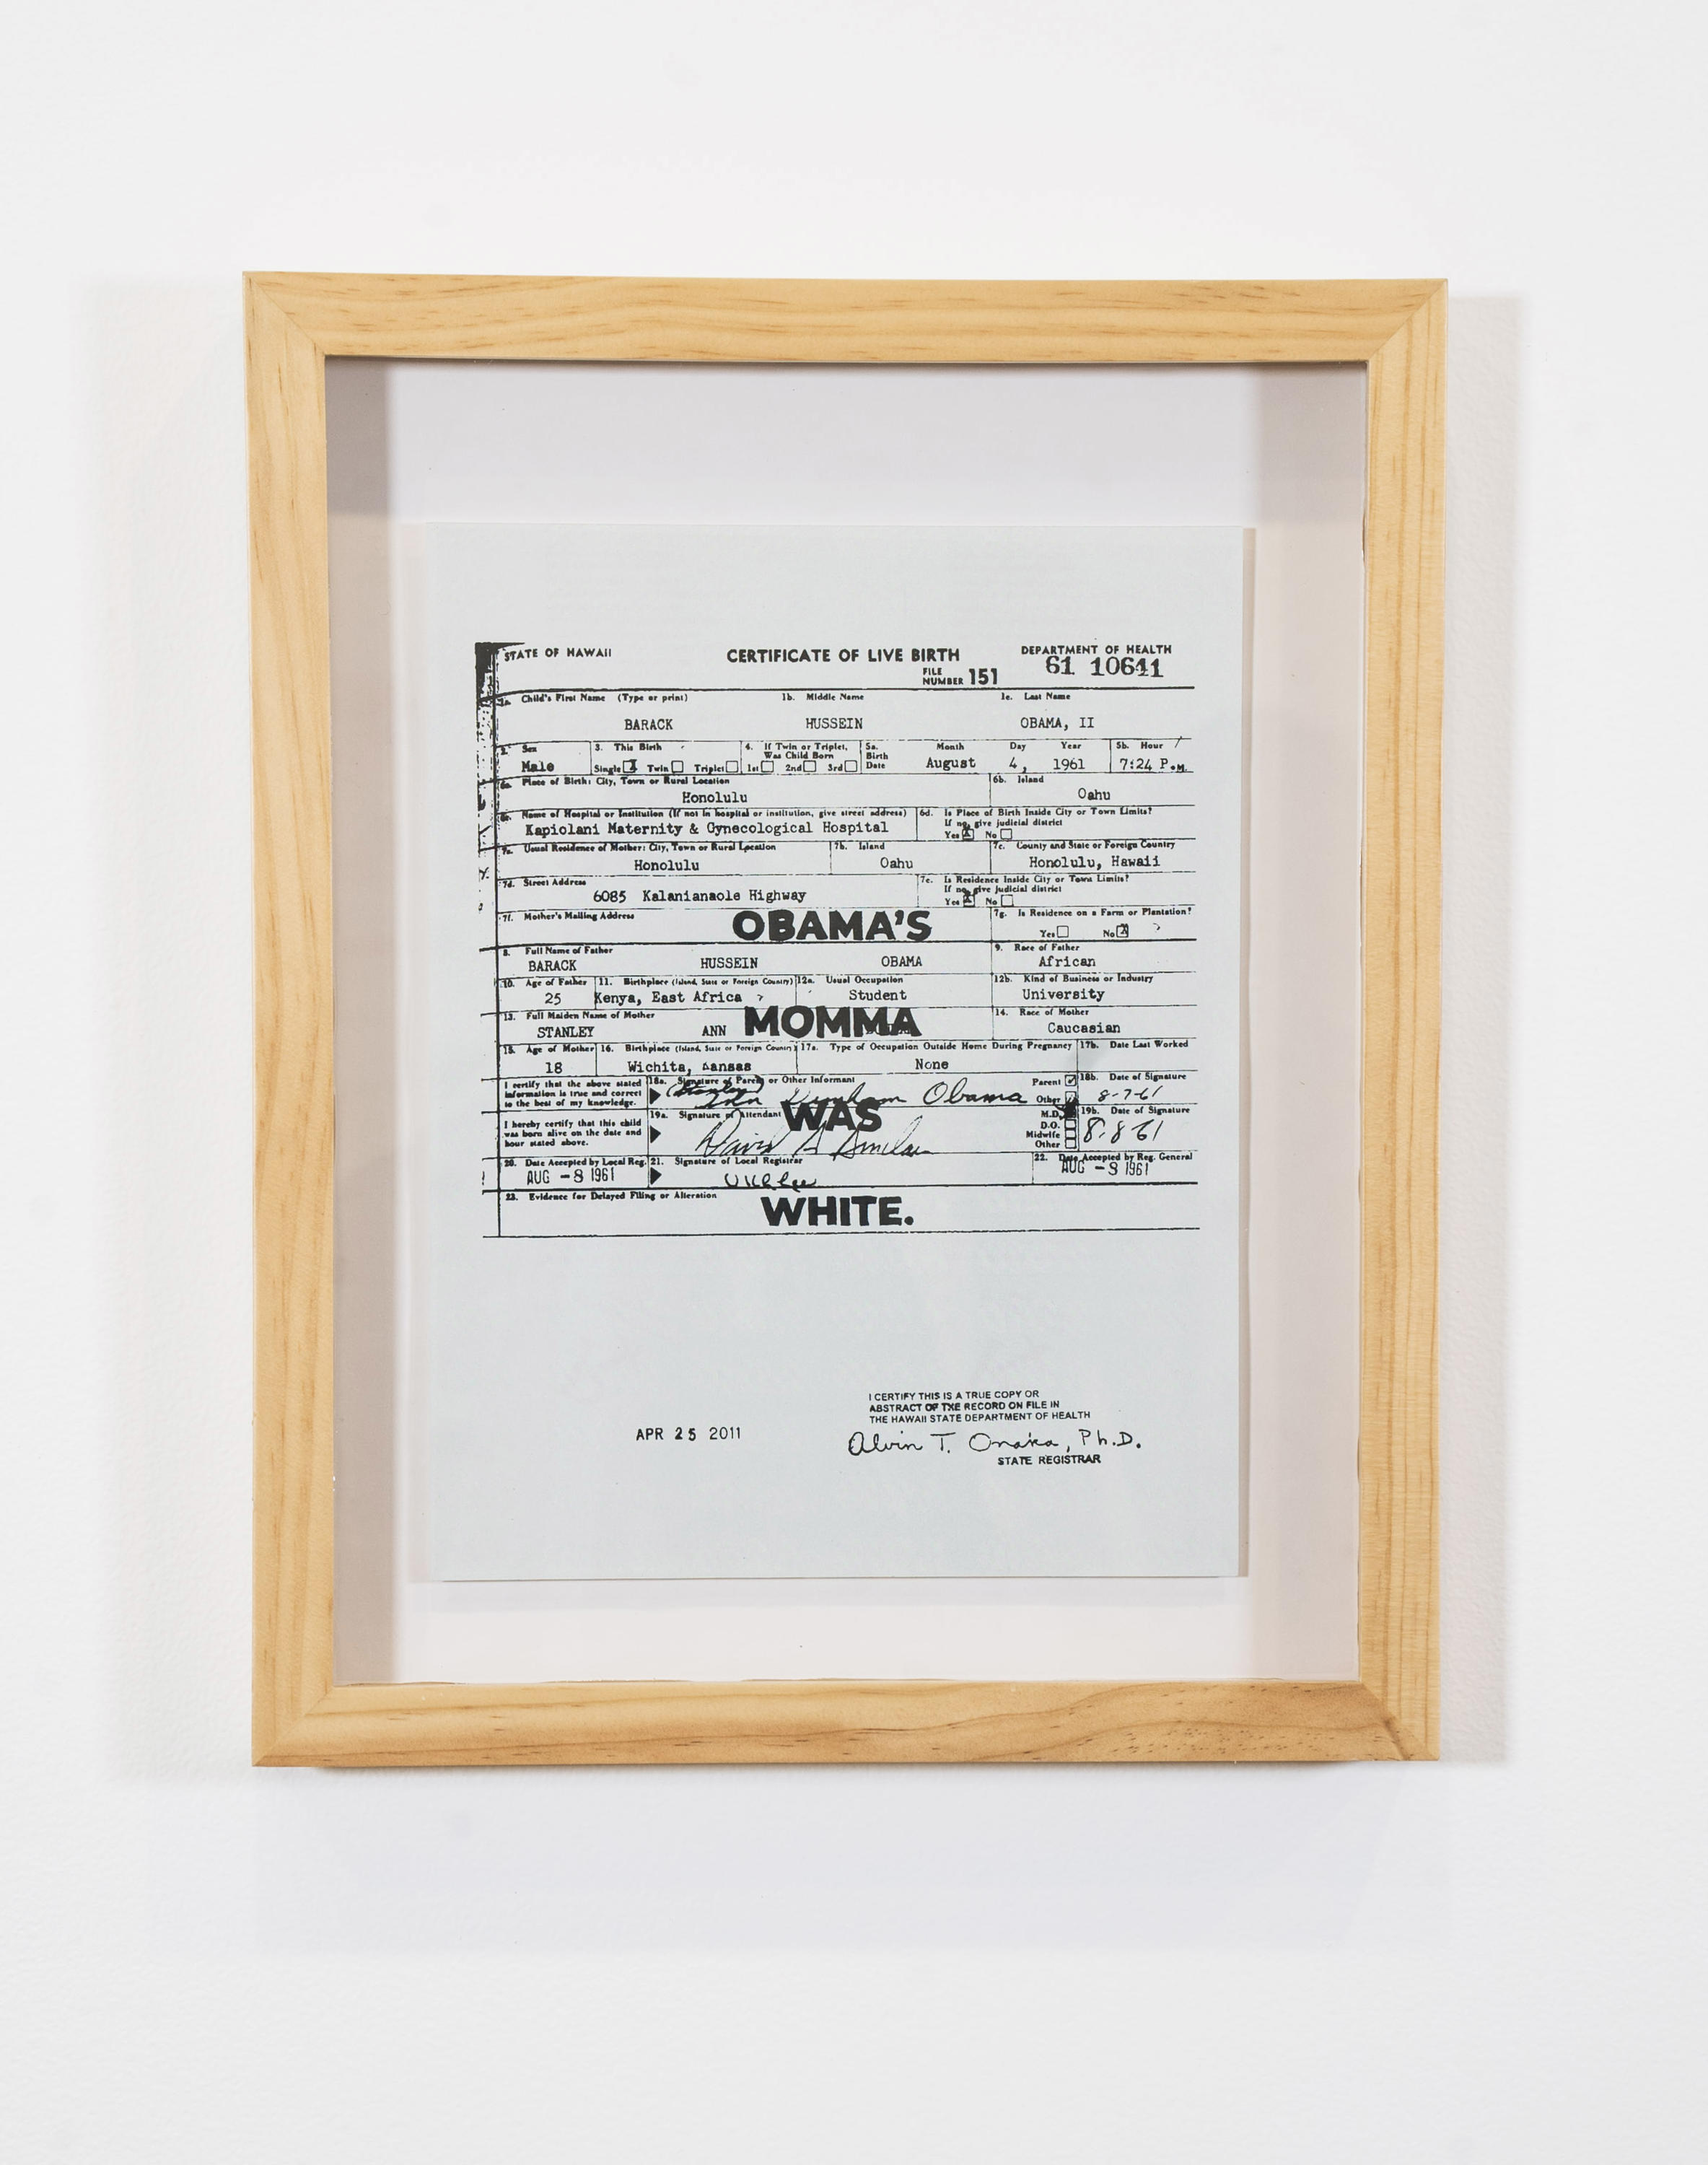 STATE OF HAWAII CERTIFICATE OF LIVE BIRTH DEPARTMENT OF HEALTH
FILE NUMBER 151 61 10641
1a. Child's First Name (Type or print) 1b. Middle Name 1c. Last Name
BARACK HUSSEIN OBAMA, II
2. Sex 3. This Birth 4. If Twin or Triplet, Was Child Born 5a. Birth Date Month Day Year 5b. Hour
Male Single Twin Triplet 1st 2nd 3rd August 4, 1961 7:24 P.M.
6a. Place of Birth: City, Town or Rural Location 6b. Island
Honolulu Oahu
6c. Name of Hospital or Institution (If not in hospital or institution, give street address) 6d. Is Place of Birth Inside City or Town Limits?
If no, give judicial district
Kapiolani Maternity & Gynecological Hospital Yes X No
7a. Usual Residence of Mother: City, Town or Rural Location 7b. Island 7c. County and State or Foreign Country
Honolulu Oahu Honolulu, Hawaii
7d. Street Address 7e. Is Residence Inside City or Town Limits?
If no, give judicial district
6085 Kalanianaole Highway Yes X No
7f. Mother's Mailing Address OBAMA'S 7g. Is Residence on a Farm or Plantation?
Yes No X
8. Full Name of Father 9. Race of Father
BARACK HUSSEIN OBAMA African
10. Age of Father 11. Birthplace (Island, State or Foreign Country) 12a. Usual Occupation 12b. Kind of Business or Industry
25 Kenya, East Africa Student University
13. Full Maiden Name of Mother 14. Race of Mother
STANLEY ANN MOMMA Caucasian
15. Age of Mother 16. Birthplace (Island, State or Foreign Country) 17a. Type of Occupation Outside Home During Pregnancy 17b. Date Last Worked
18 Wichita, Kansas None
I certify that the above stated information is true and correct to the best of my knowledge. 18a. Signature of Parent or Other Informant Parent Other 18b. Date of Signature
(Stanley) Ann Dunham Obama 8-7-61
I hereby certify that this child was born alive on the date and hour stated above. 19a. Signature of Attendant WAS M.D. D.O. Midwife Other 19b. Date of Signature
David A 8-8-61
20. Date Accepted by Local Reg. 21. Signature of Local Registrar 22. Date Accepted by Reg. General
AUG -8 1961 AUG -8 1961
23. Evidence for Delayed Filing or Alteration
WHITE.
I CERTIFY THIS IS A TRUE COPY OR
ABSTRACT OF TXE RECORD ON FILE IN
THE HAWAII STATE DEPARTMENT OF HEALTH
APR 25 2011 Alvin T. Onaka, Ph.D.
STATE REGISTRAR